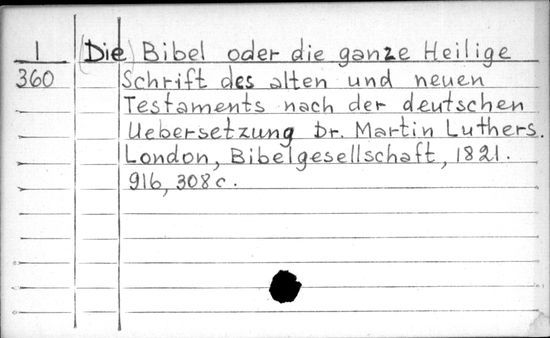 1 (Die) Bibel oder die ganze Heilige
360 Schrift des alten und neuen
Testaments nach der deutschen
Uebersetzung Dr. Martin Luthers.
London, Bibelgesellschaft, 1821.
916, 308 c.